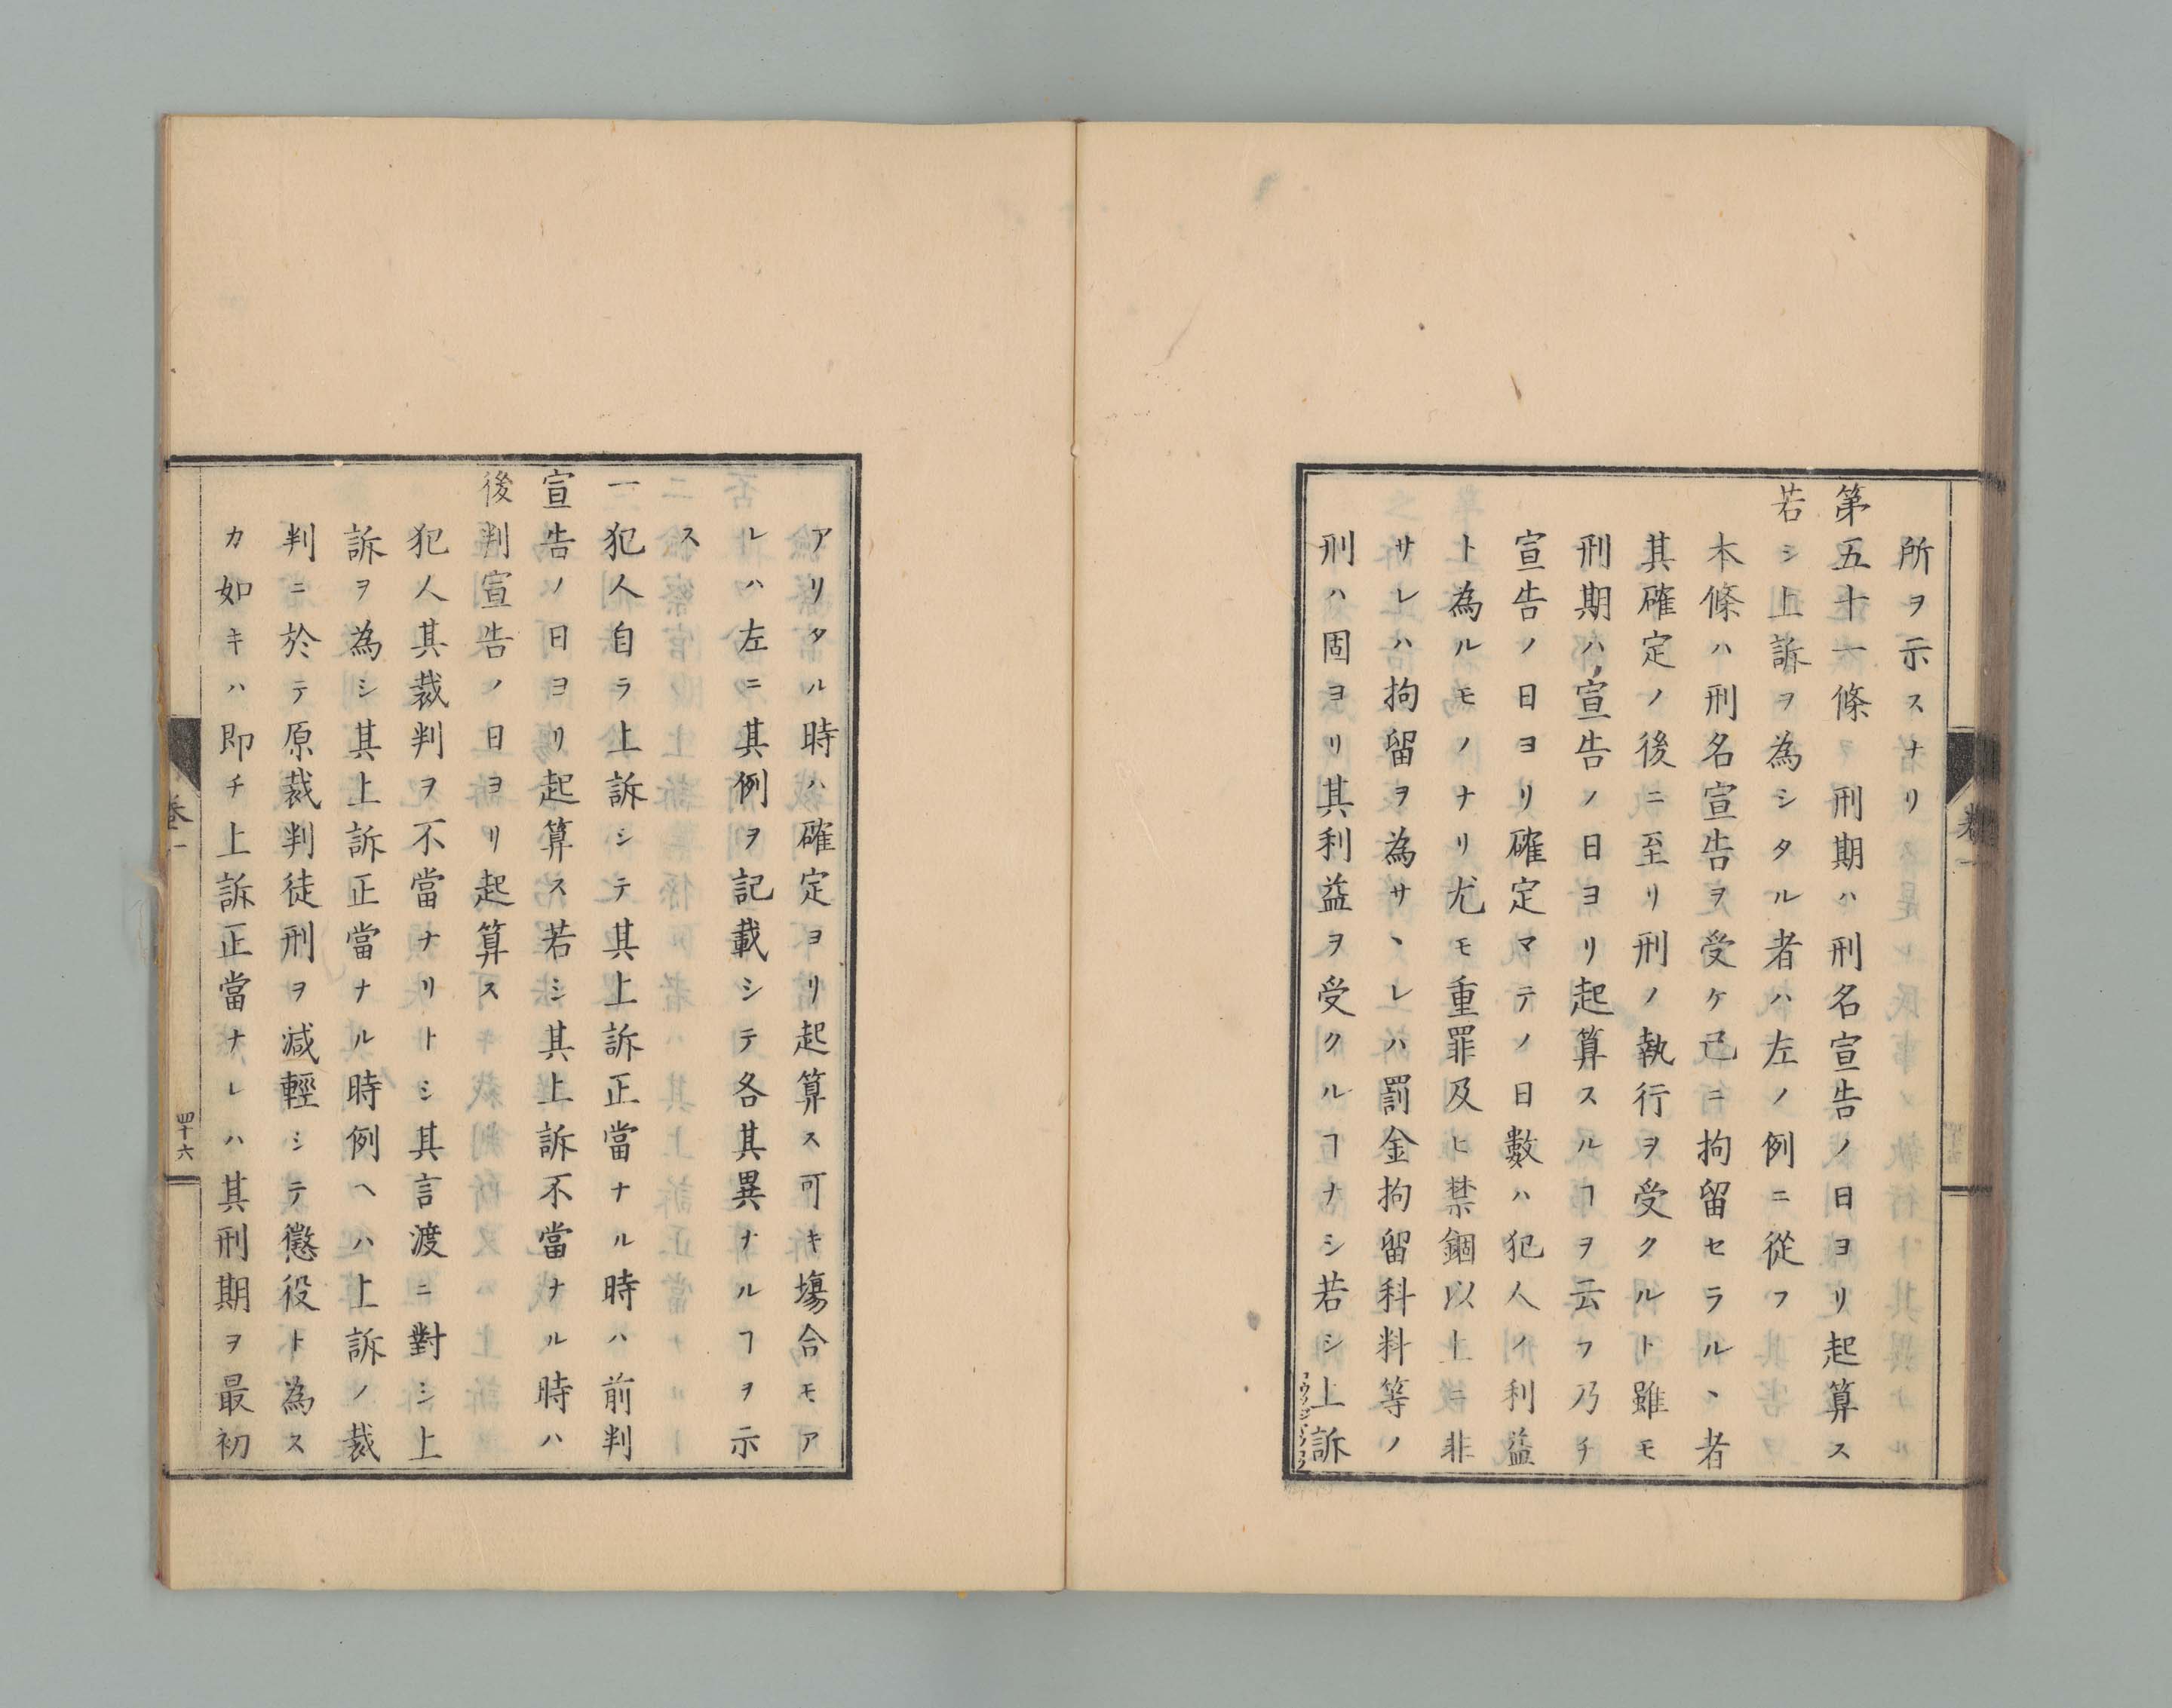 所ヲ示スナリ
第五十一條　刑期ハ刑名宣告ノ日ヨリ起算ス
若シ上訴ヲ為シタル者ハ左ノ例ニ從フ
本條ハ刑名宣告ヲ受ケ已ニ拘留セラルヽ者
其確定ノ後ニ至リ刑ノ執行ヲ受クルト雖モ
刑期ハ宣告ノ日ヨリ起算スルヿヲ云フ乃チ
宣告ノ日ヨリ確定マテノ日數ハ犯人ノ利益
ト為ルモノナリ尤モ重罪及ヒ禁錮以上ニ非
サレハ拘留ヲ為サヽレハ罰金拘留科料等ノ
刑ハ固ヨリ其利益ヲ受クルヿナシ若シ上訴
アリタル時ハ確定ヨリ起算ス可キ場合モア
レハ左ニ其例ヲ記載シテ各其異ナルヿヲ示
ス
一犯人自ラ上訴シテ其上訴正當ナル時ハ前判
宣告ノ日ヨリ起算ス若シ其上訴不當ナル時ハ
後判宣告ノ日ヨリ起算ス
犯人其裁判ヲ不當ナリトシ其言渡ニ對シ上
訴ヲ為シ其上訴正當ナル時例ヘハ上訴ノ裁
判ニ於テ原裁判徒刑ヲ減輕シテ懲役ト為ス
カ如キハ即チ上訴正當ナレハ其刑期ヲ最初
卷一
四十六